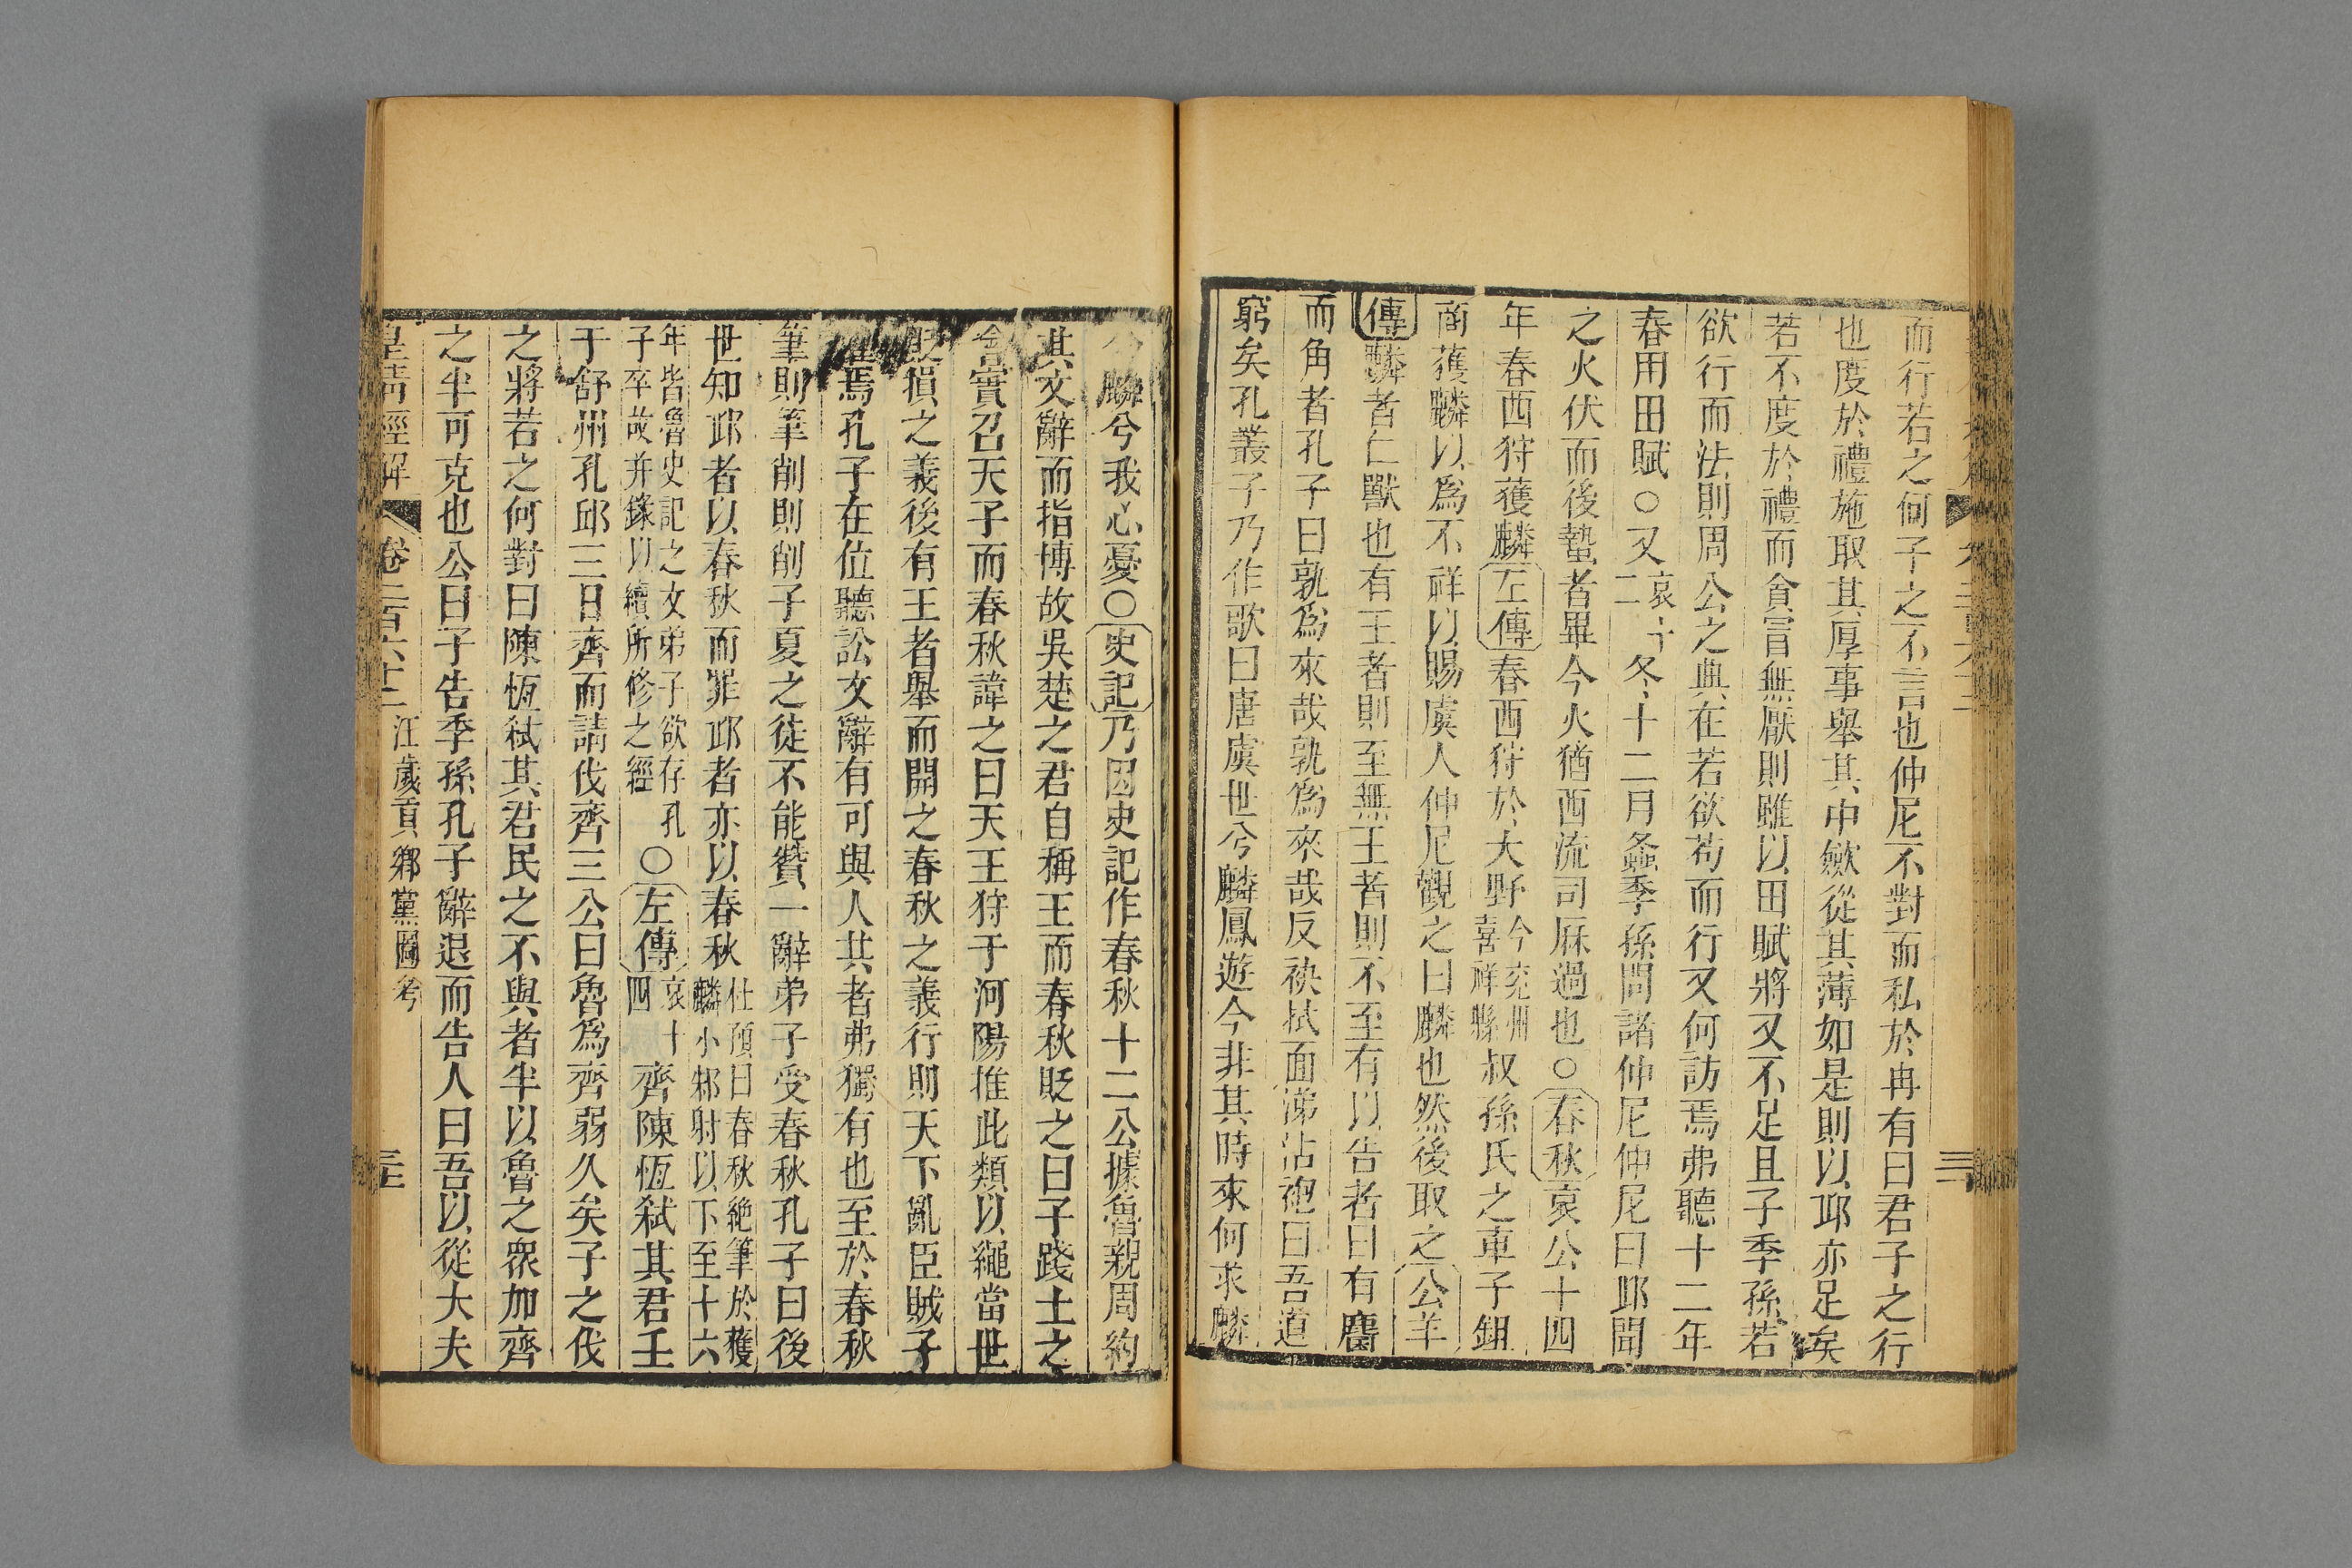 而行若之何子之不言也仲尼不對而私於冉有曰君子之行
也度於禮施取其厚事舉其中斂從其薄如是則以邱亦足矣
若不度於禮而貪冒無厭則雖以田賦將又不足且子季孫若
欲行而法則周公之典在若欲苟而行又何訪焉弗聽十二年
春用田賦○又哀十二冬十二月螽季孫問諸仲尼仲尼曰邱聞
之火伏而後蟄者畢今火猶西流司厤過也○春秋哀公十四
年春西狩獲麟左傳春西狩於大野今兗州嘉祥縣叔孫氏之車子鉏
商獲麟以爲不祥以賜虞人仲尼觀之曰麟也然後取之公羊
傳麟者仁獸也有王者則至無王者則不至有以告者曰有麕
而角者孔子曰孰爲來哉孰爲來哉反袂拭面涕沾袍曰吾道
窮矣孔叢子乃作歌曰唐虞世兮麟鳳遊今非其時來何求麟
兮麟兮我心憂○史記乃因史記作春秋十二公據魯親周約
其文辭而指博故吳楚之君自稱王而春秋貶之曰子踐土之
會實召天子而春秋諱之曰天王狩于河陽推此類以繩當世
貶損之義後有王者舉而開之春秋之義行則天下亂臣賊子
懼焉孔子在位聽訟文辭有可與人共者弗獨有也至於春秋
筆則筆削則削子夏之徒不能贊一辭弟子受春秋孔子曰後
世知邱者以春秋而罪邱者亦以春秋杜預曰春秋絕筆於獲麟小邾射以下至十六
年皆魯史記之文弟子欲存孔子卒故并錄以續所修之經○左傳哀十四齊陳恆弑其君壬
于舒州孔邱三日齊而請伐齊三公曰魯爲齊弱久矣子之伐
之將若之何對曰陳恆弑其君民之不與者半以魯之眾加齊
之半可克也公曰子告季孫孔子辭退而告人曰吾以從大夫
皇清經解 卷二百六十二 江歲貢鄉黨圖考